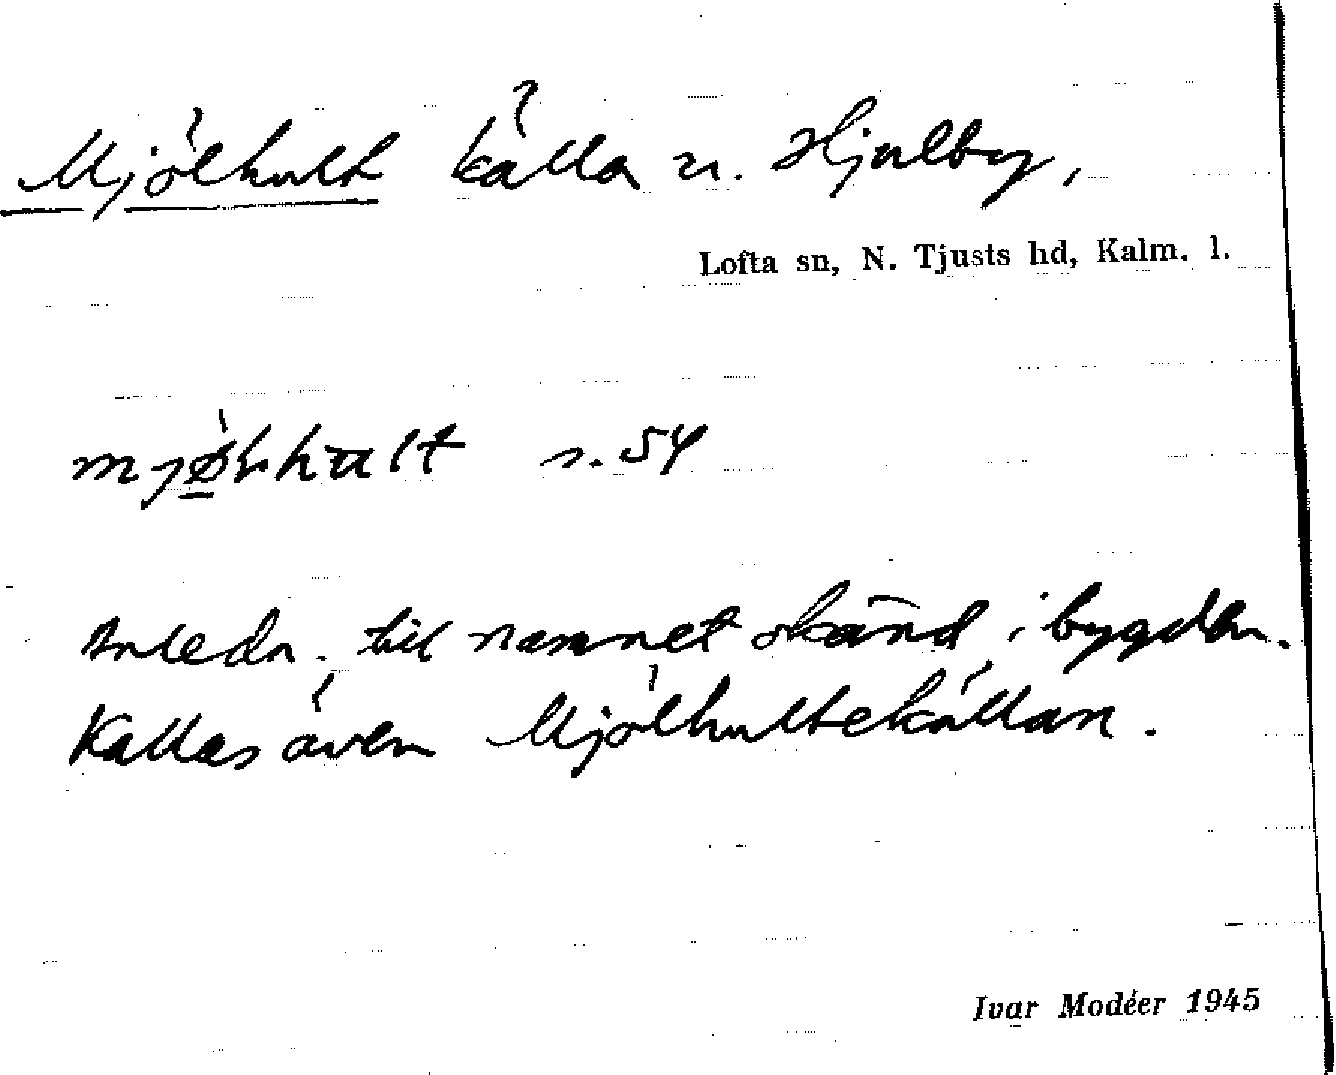 Mjölhult källa u. Hjulby,
Lofta sn, N. Tjusts hd, Kalm. l.
s. 54
Anledn. till namnet okänd i bygden.
Kallas även Mjölhultekällan.
Ivar Modéer 1945